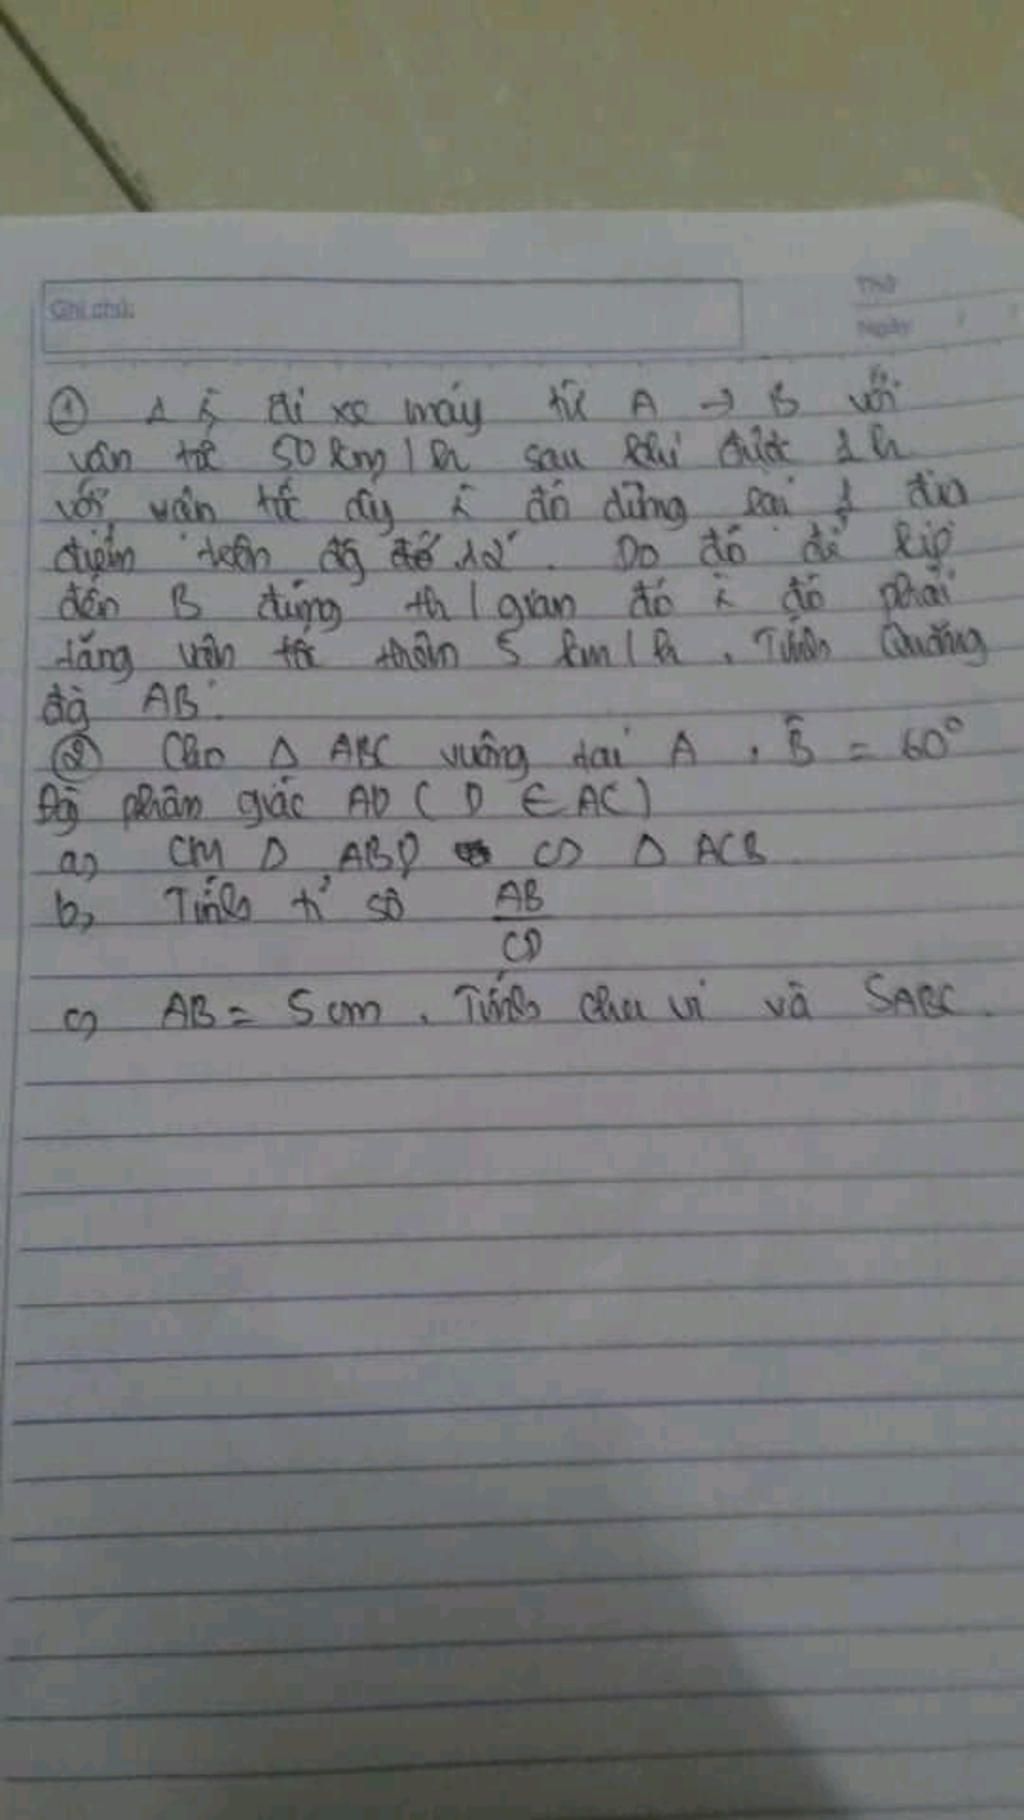 Ghi chú:
Thứ
Ngày / /
① 1 đi xe máy từ A → B với
vận tốc 50 km/h sau khi được 1h
với vận tốc ấy đó dừng lại 1 địa
điểm trên 12'. Do đó để kịp
đến B đúng th/gian đó đó phải
tăng vận tốc thêm 5 km/h. Tính Quãng
AB.
② Cho Δ ABC vuông tại A, B̂ = 60°
phân giác AD (D ∈ AC)
a, CM Δ ABD ∽ Δ ACB
b, Tính tỉ số AB
CD
c, AB = 5 cm. Tính chu vi và SABC.